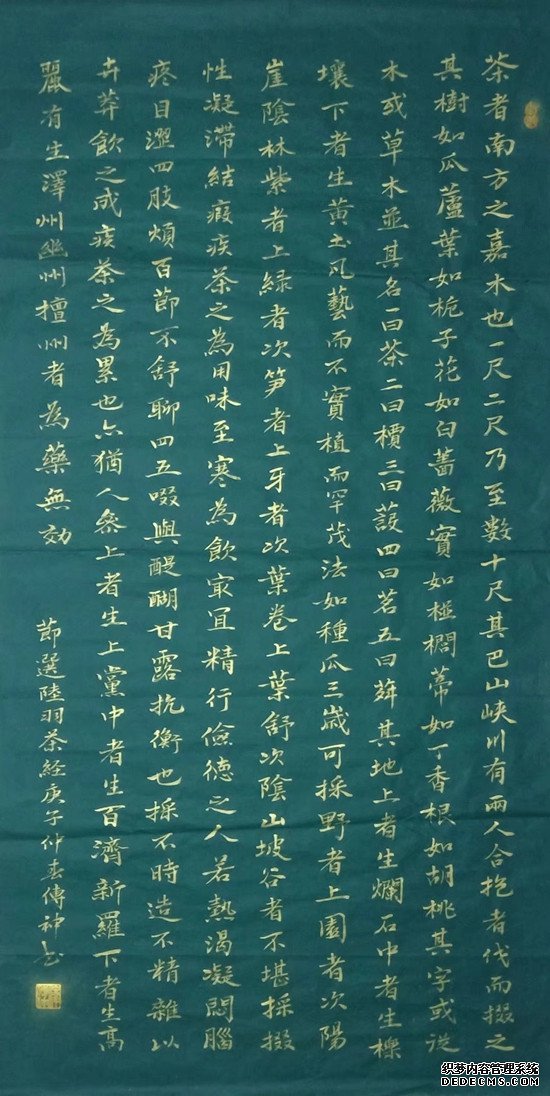 茶者南方之嘉木也一尺二尺乃至數十尺其巴山峽川有兩人合抱者伐而掇之
其樹如瓜蘆葉如梔子花如白薔薇實如栟櫚蒂如丁香根如胡桃其字或從
木或草木並其名一曰茶二曰檟三曰蔎四曰茗五曰荈其地上者生爛石中者生櫟
壤下者生黃土凡藝而不實植而罕茂法如種瓜三歲可採野者上園者次陽
崖陰林紫者上緑者次笋者上牙者次葉卷上葉舒次陰山坡谷者不堪採掇
性凝滯結瘕疾茶之為用味至寒為飲最宜精行儉德之人若熱渴凝悶腦
疼目澀四肢煩百節不舒聊四五啜與醍醐甘露抗衡也採不時造不精雜以
卉莽飲之成疾茶之為累也亦猶人參上者生上黨中者生百濟新羅下者生高
麗有生澤州幽州檀州者為藥無効
節選陸羽茶經庚子仲春傳神書
织梦内容管理系统
DEDECMS.COM